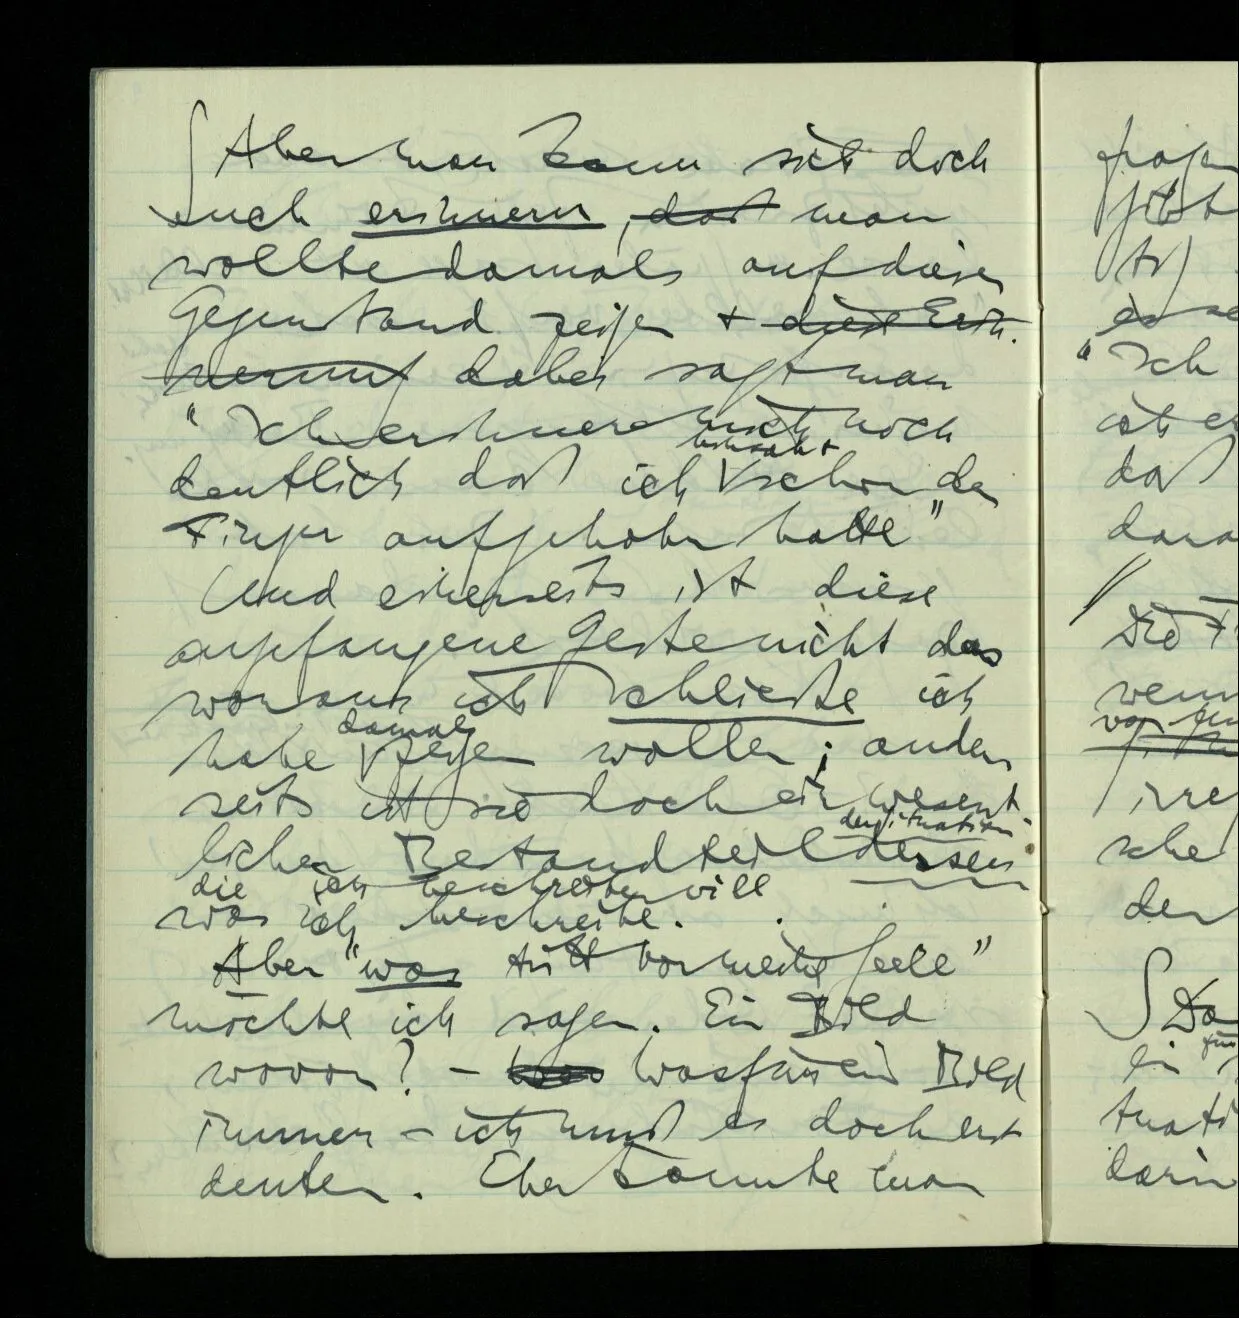 ∫ Aber man kann sich doch
auch erinnern, daß man
wollte damals auf diesen
Gegenstand zeigen + diese Erin-
nerung dabei sagt man
"Ich erinnere mich noch
beinahe
deutlich daß ich schon den
Finger aufgehoben hatte"
Und einerseits ist diese
angefangene Geste nicht das
woraus ich schließe ich
damals
habe zeigen wollen; ander
seits ist sie doch ein wesent-
der Situation
licher Bestandteil dessen
die ich beschreiben will
was ich beschreibe.
Aber "was tritt vor meine Seele"
möchte ich sagen. Ein Bild
wovon? – was für ein Bild
immer – ich muß es doch erst
deuten. Eher könnte man
fragen
gibt
"Ich
daß
Die F
wenn
irre
sche
der
∫ Da
darin